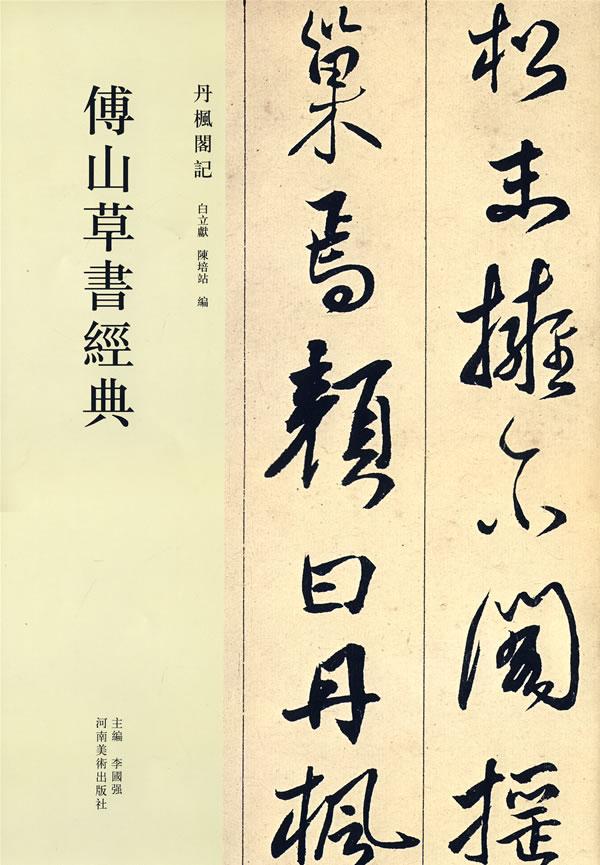 松末擁一小閣搖
巢焉顏曰丹楓
丹楓閣記
白立獻 陳培站 編
傅山草書經典
主編 李國强
河南美術出版社